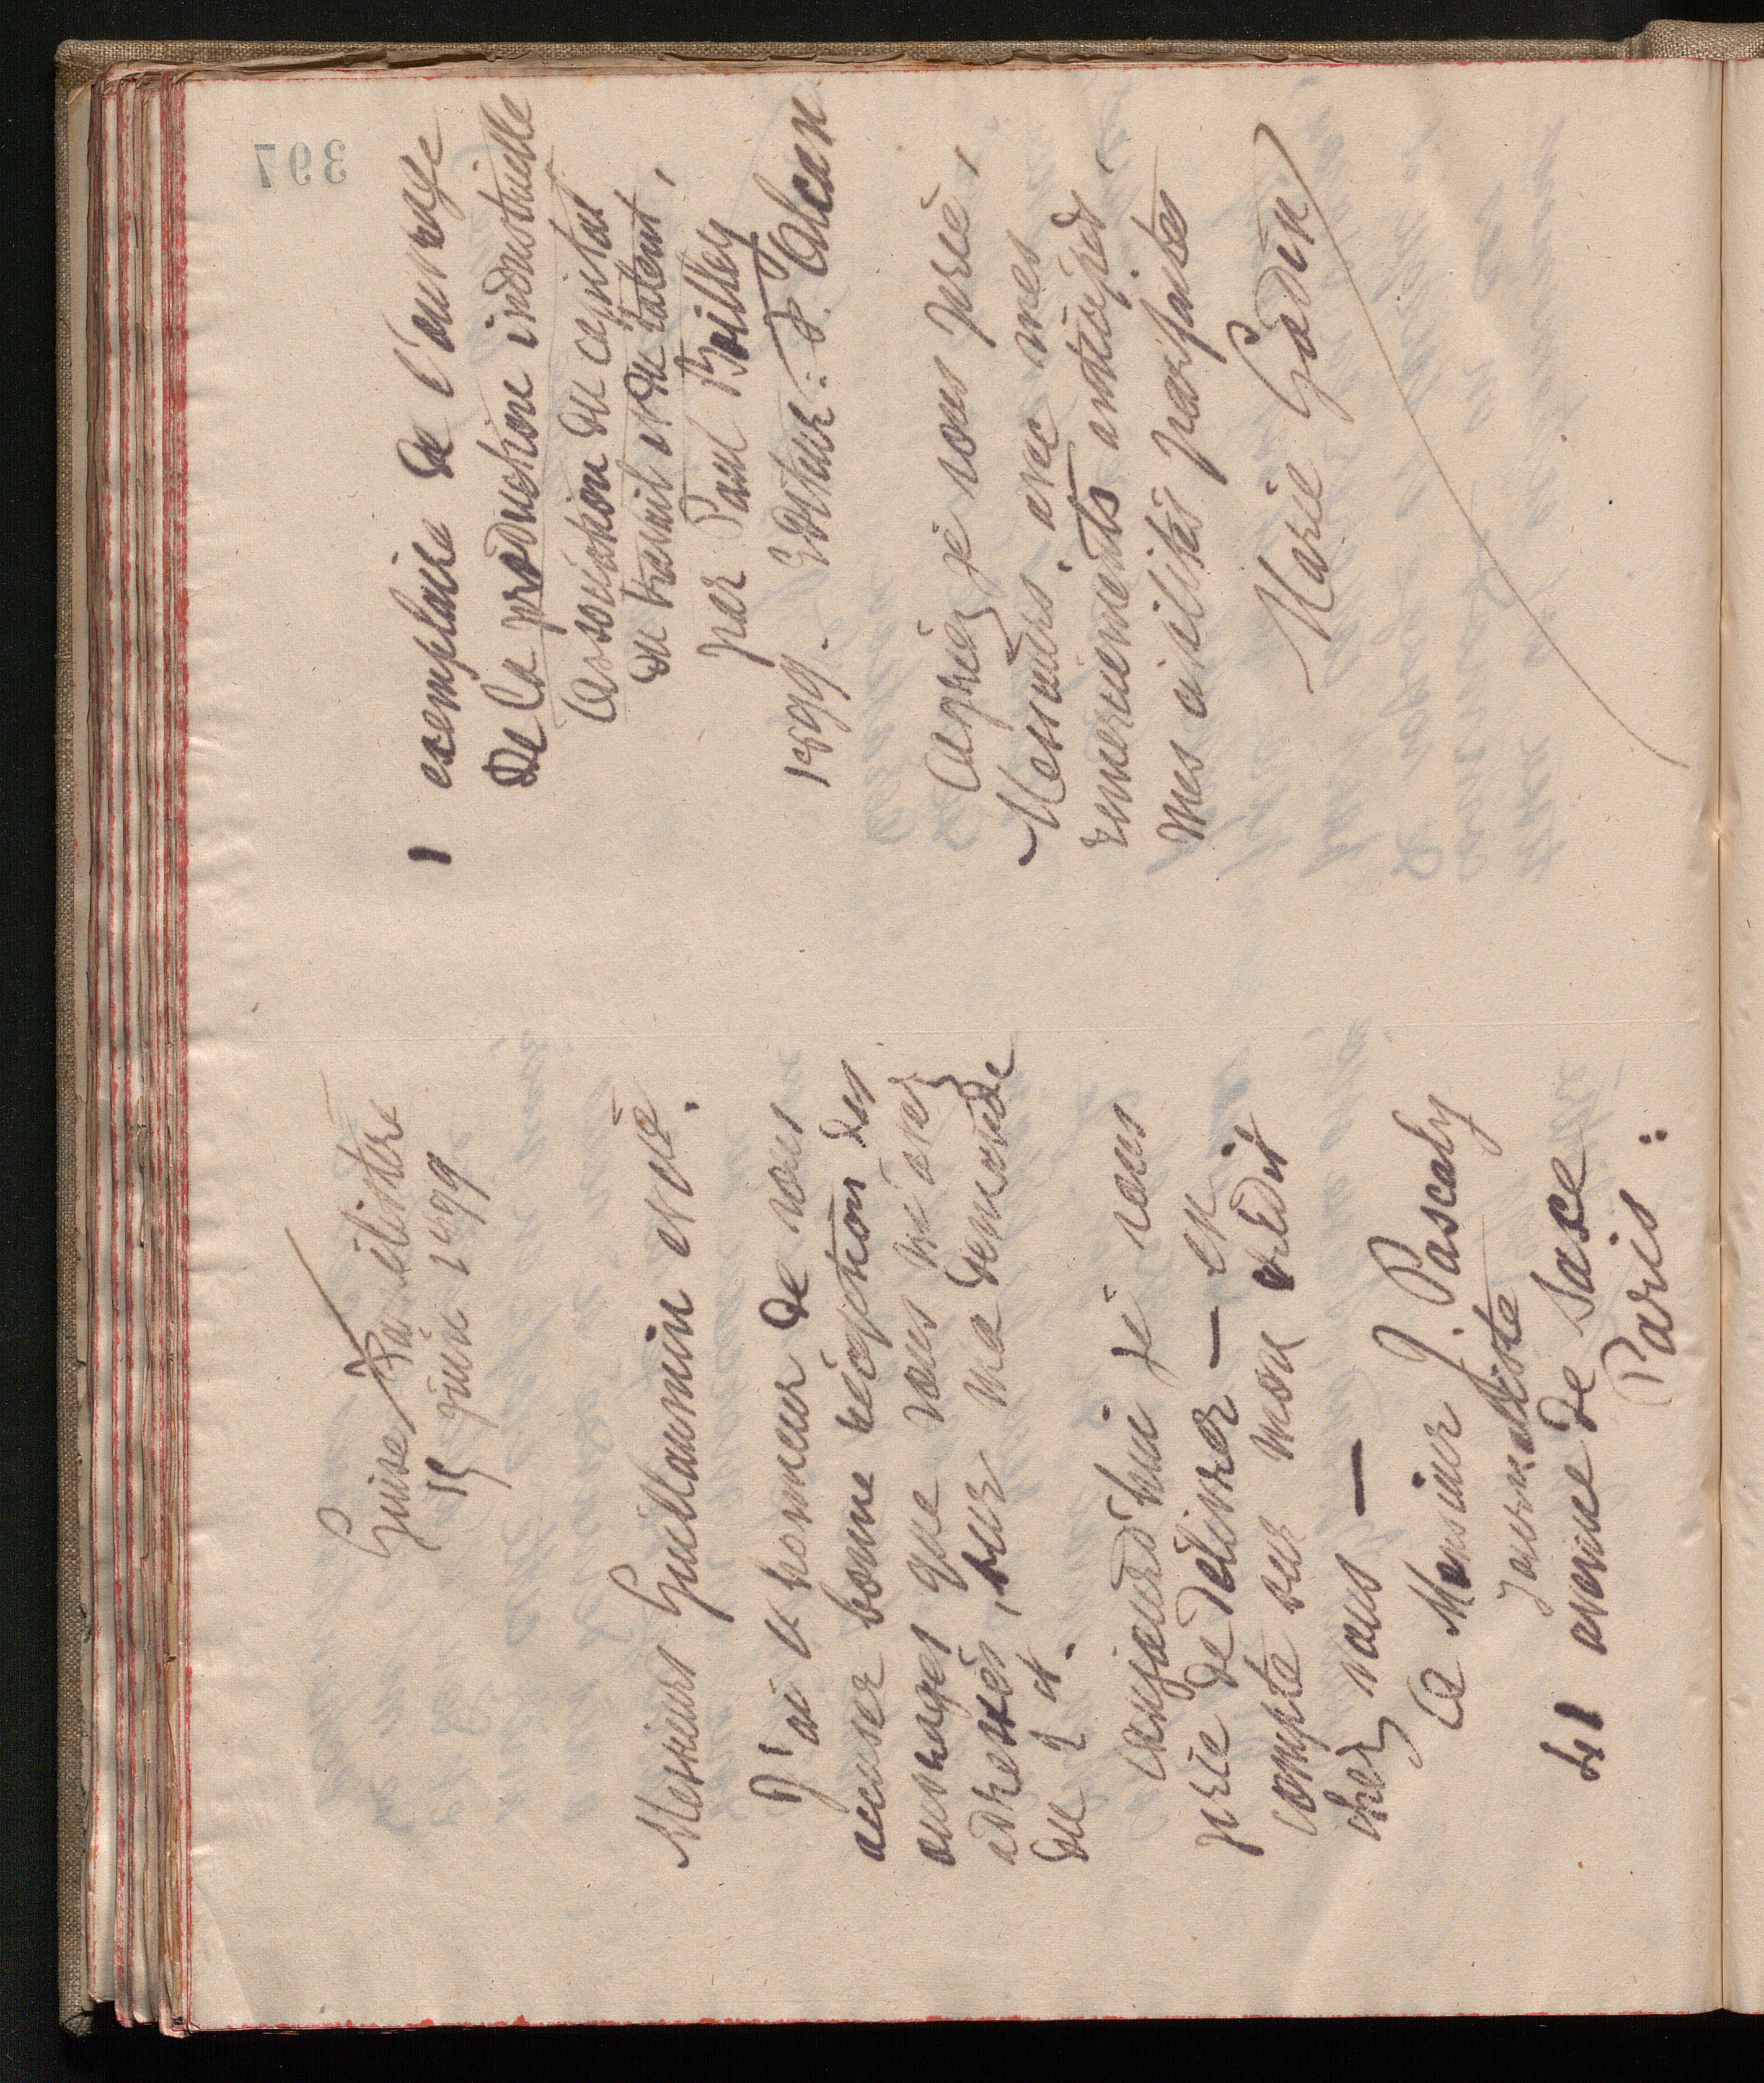 Guise Familistère
15 juin 1899
Messieurs Guillaumin et Cie.
J'ai l'honneur de vous
accuser bonne réception des
ouvrages que vous m'avez
adressés, sur ma demande
du 9 ct.
Aujourd'hui je vous
prie de délivrer — en
compte sur mon crédit
chez vous —
à Monsieur J. Pascaly
Journaliste
41 avenue de Saxe
Paris :
1 exemplaire de l'ouvrage
De la production industrielle
Association du capital
du travail et du talent,
par Paul Boilley
1899. Editeur : F. Alcan
Agréez je vous prie,
Messieurs, avec mes
remerciements anticipés,
mes civilités parfaites
Marie Godin
397